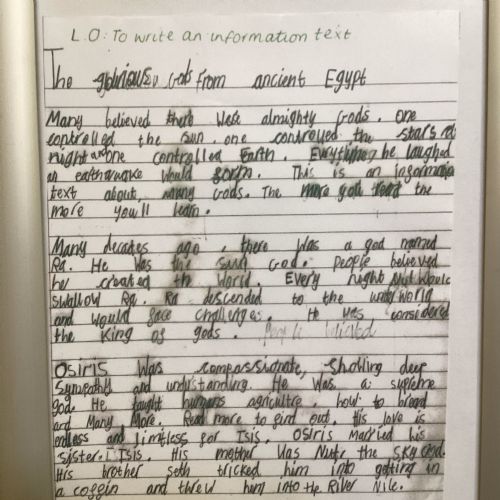 L.O: To write an information text
The glorious Gods from ancient Egypt
Many believed there were almighty Gods. One
controlled the sun. one controlled the stars
night and one controlled Earth. Everytime he laughed
an earthquake would form. This is an information
text about, many Gods. The more you read the
more you'll learn.
Many decades ago, there was a god named
Ra. He was the sun God. People believed
he created the world. Every night Nut would
swallow Ra. Ra descended to the underworld
and would face challenges. He was considered
the King of gods. People believed
Osiris was compassionate, showing deep
sympathy and understanding. He was a supreme
god. He taught humans agriculture, how to breed
and Many More. Read more to find out. His love is
endless and limitless for Isis. Osiris married his
sister: Isis. His mother was Nut the sky God.
His brother seth tricked him into getting in
a coffin and threw him into the River Nile.